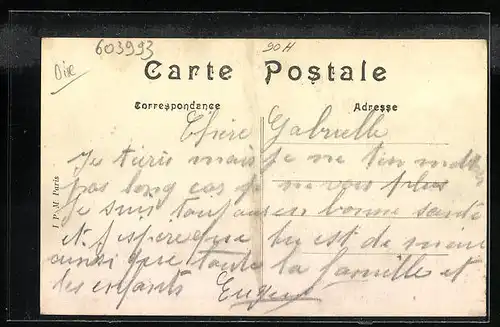 603993
90H
Oise
Carte Postale
Correspondance
Adresse
Chère Gabrielle
Je tecris mais je ne ten mets
pas long car je ne vois plus
Je suis toujours en bonne santé
et j'espere que tu est de meme
ainsi que toute la famille et
les enfants Eugene
I. P. M. Paris